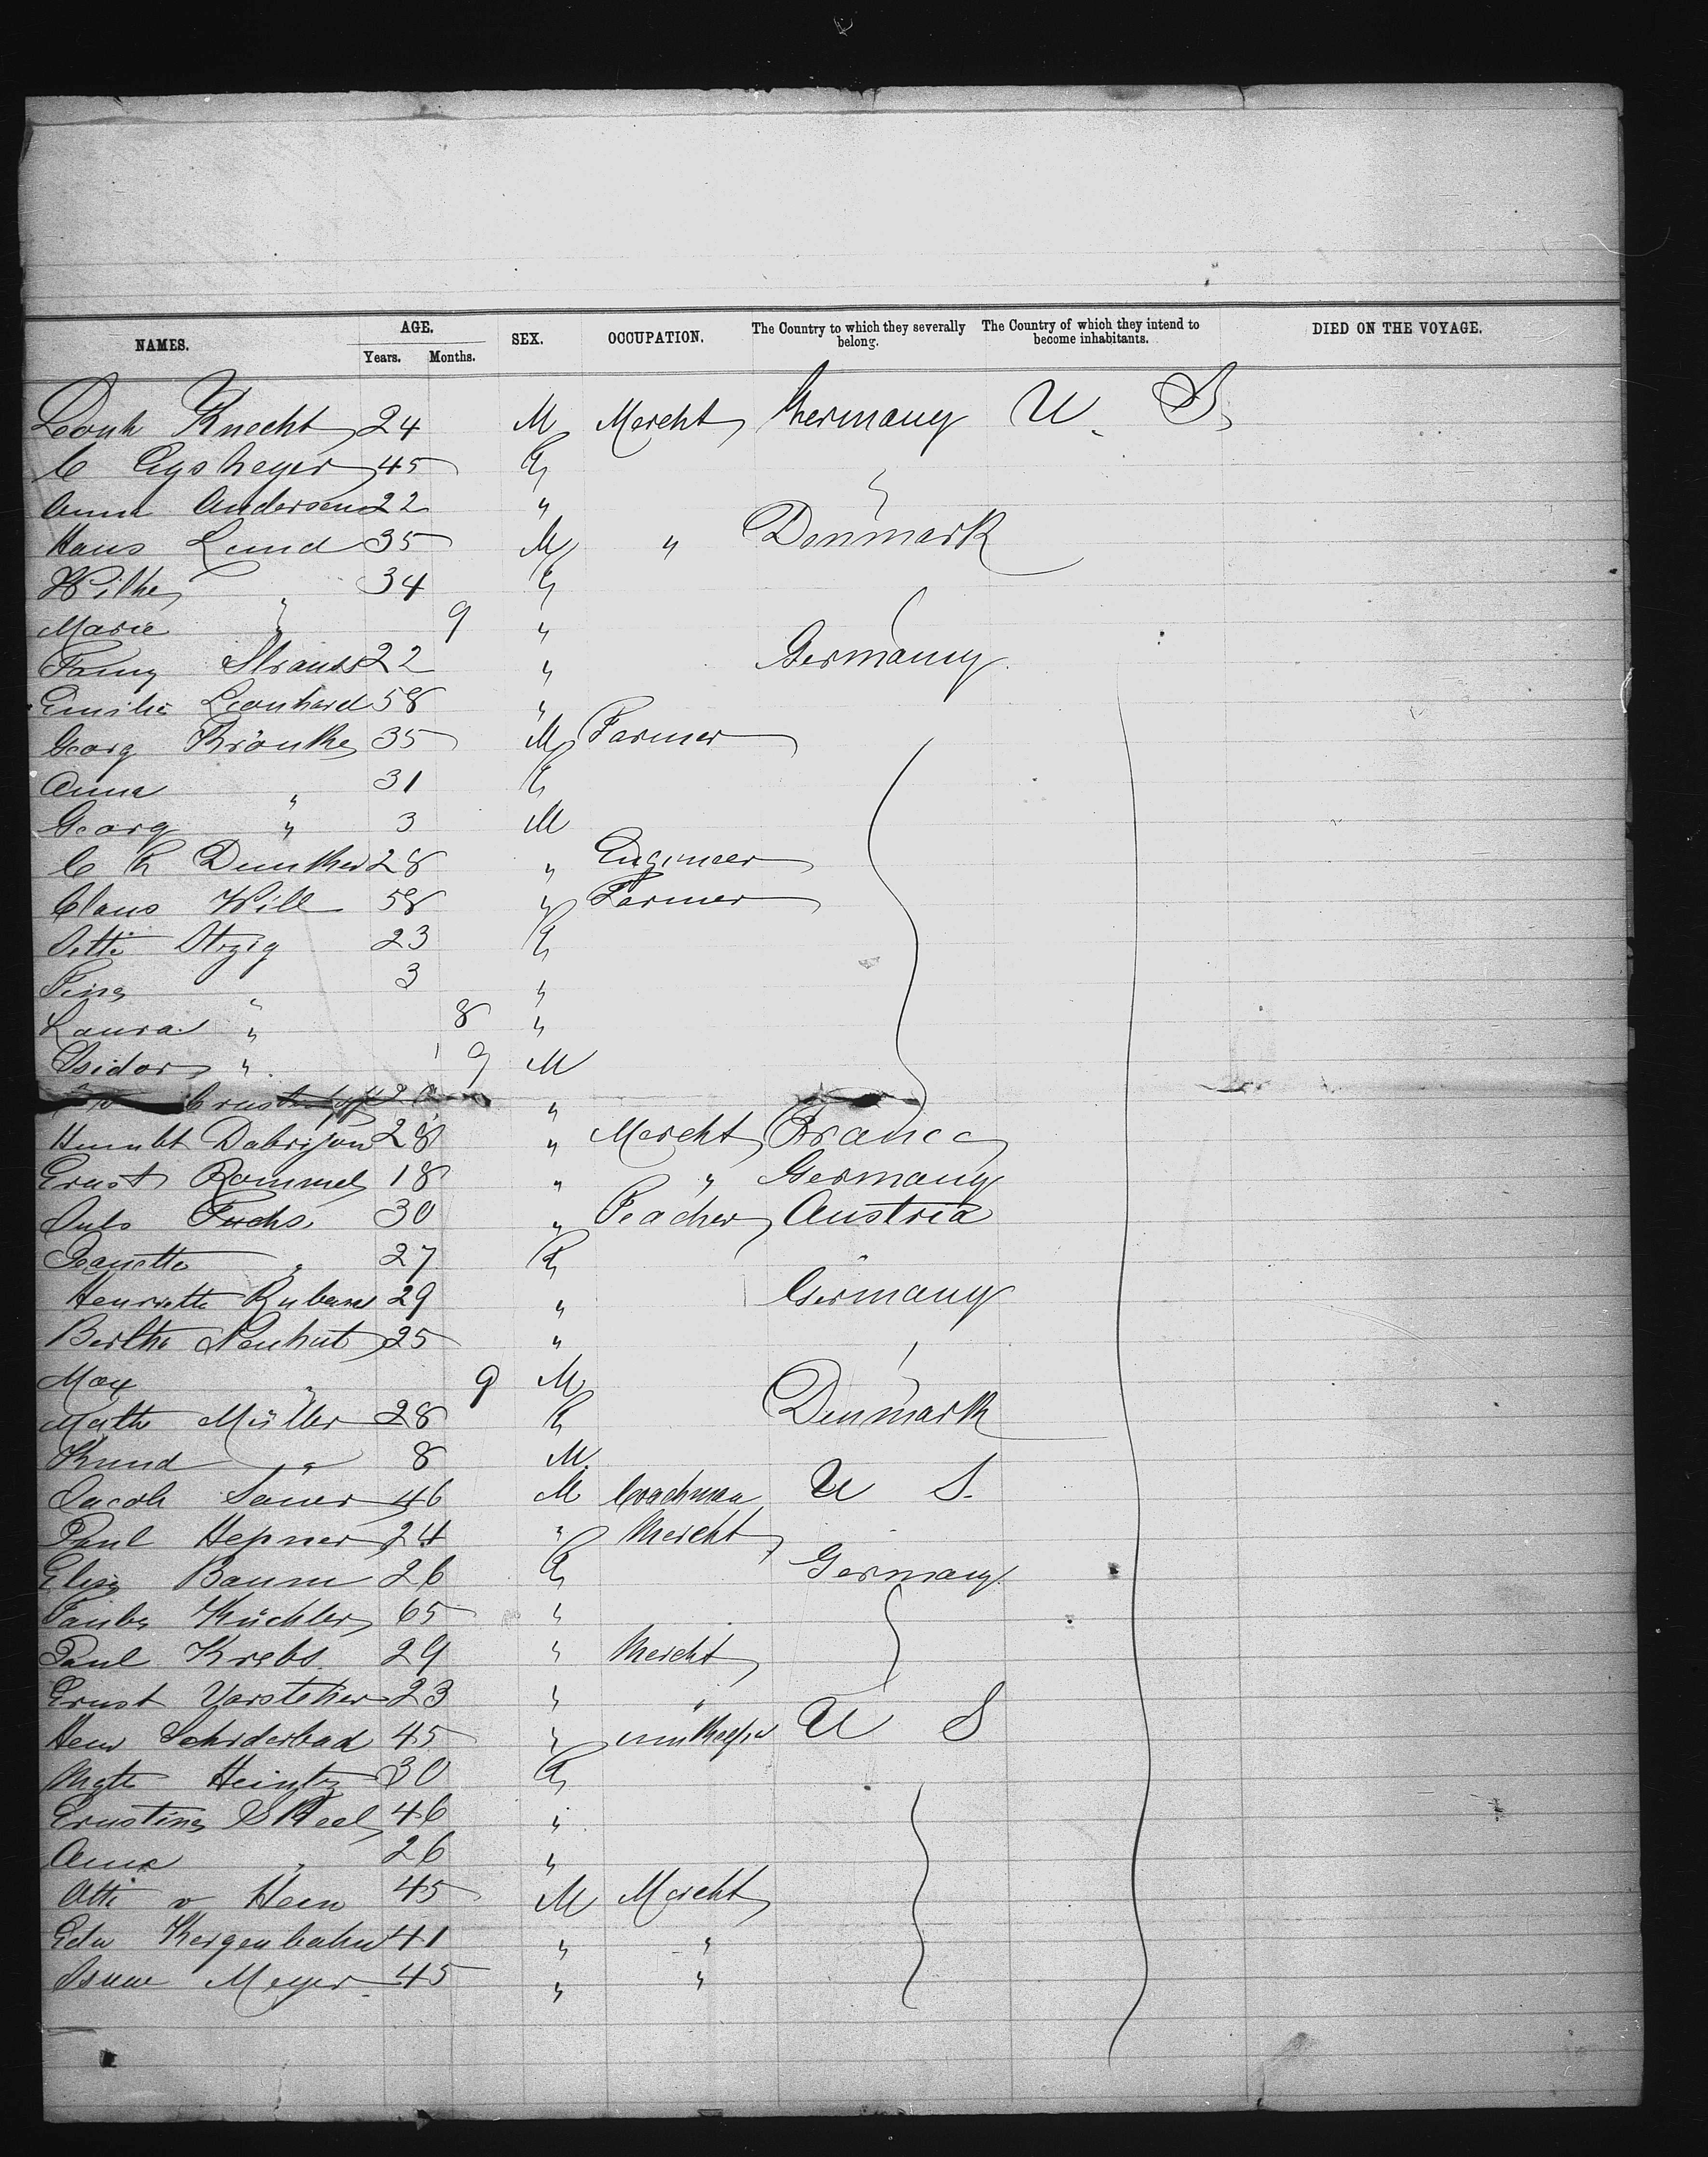 NAMES. AGE. Years. Months. SEX. OCCUPATION. The Country to which they severally belong. The Country of which they intend to become inhabitants. DIED ON THE VOYAGE.
Leonh Knecht 24 M Mercht Germany U. S.
C 45 F
Anna Andersen 22 "
Hans Lund 35 M " Denmark
Wilhe " 34 F
Marie " 9 "
Fanny Strauss 22 " Germany
Emilie Leonhard 58 "
Georg Krönke 35 M Farmer
Anna " 31 F
Georg " 3 M
C F Dunker 28 " Engineer
Claus Will 58 " Farmer
23 F
" 3 "
Laura " 8 "
Isidor " 9 M
"
28 " Mercht France
Ernst Rommel 18 " " Germany
Fuchs 30 " Teacher Austria
Jeanette " 27 F
Henriette 29 " Germany
Bertha Neuhut 25 "
Max " 9 M
Müller 28 F Denmark
Knud " 8 M
Jacob Sauer 46 M Coachman U S.
Paul Hepner 24 " Mercht
Elise Baum 26 F Germany
Küchler 65 "
Paul Krebs 29 " Mercht
Ernst 23 " "
45 " U S
Mgte Heintz 30 F
Ernstine Skeel 46 "
Anna " 26 "
Otto v Heen 45 M Mercht
Edw 41 " "
Meyer 45 " "